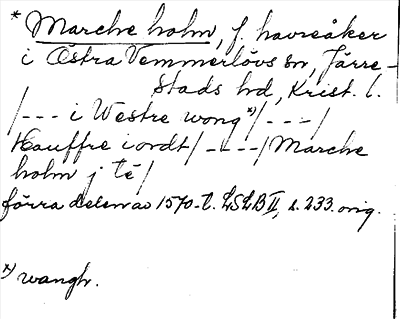 * Marche holm, f. havreåker
i Östra Vemmerlövs sn, Järre-
stads hd, Krist. l.
/--- i Westre wong x)/---/
Hauffre iordt/----/Marche
holm j té/
förra delen av 1570-t. LSLB II, s. 233. orig.
x) wangh.